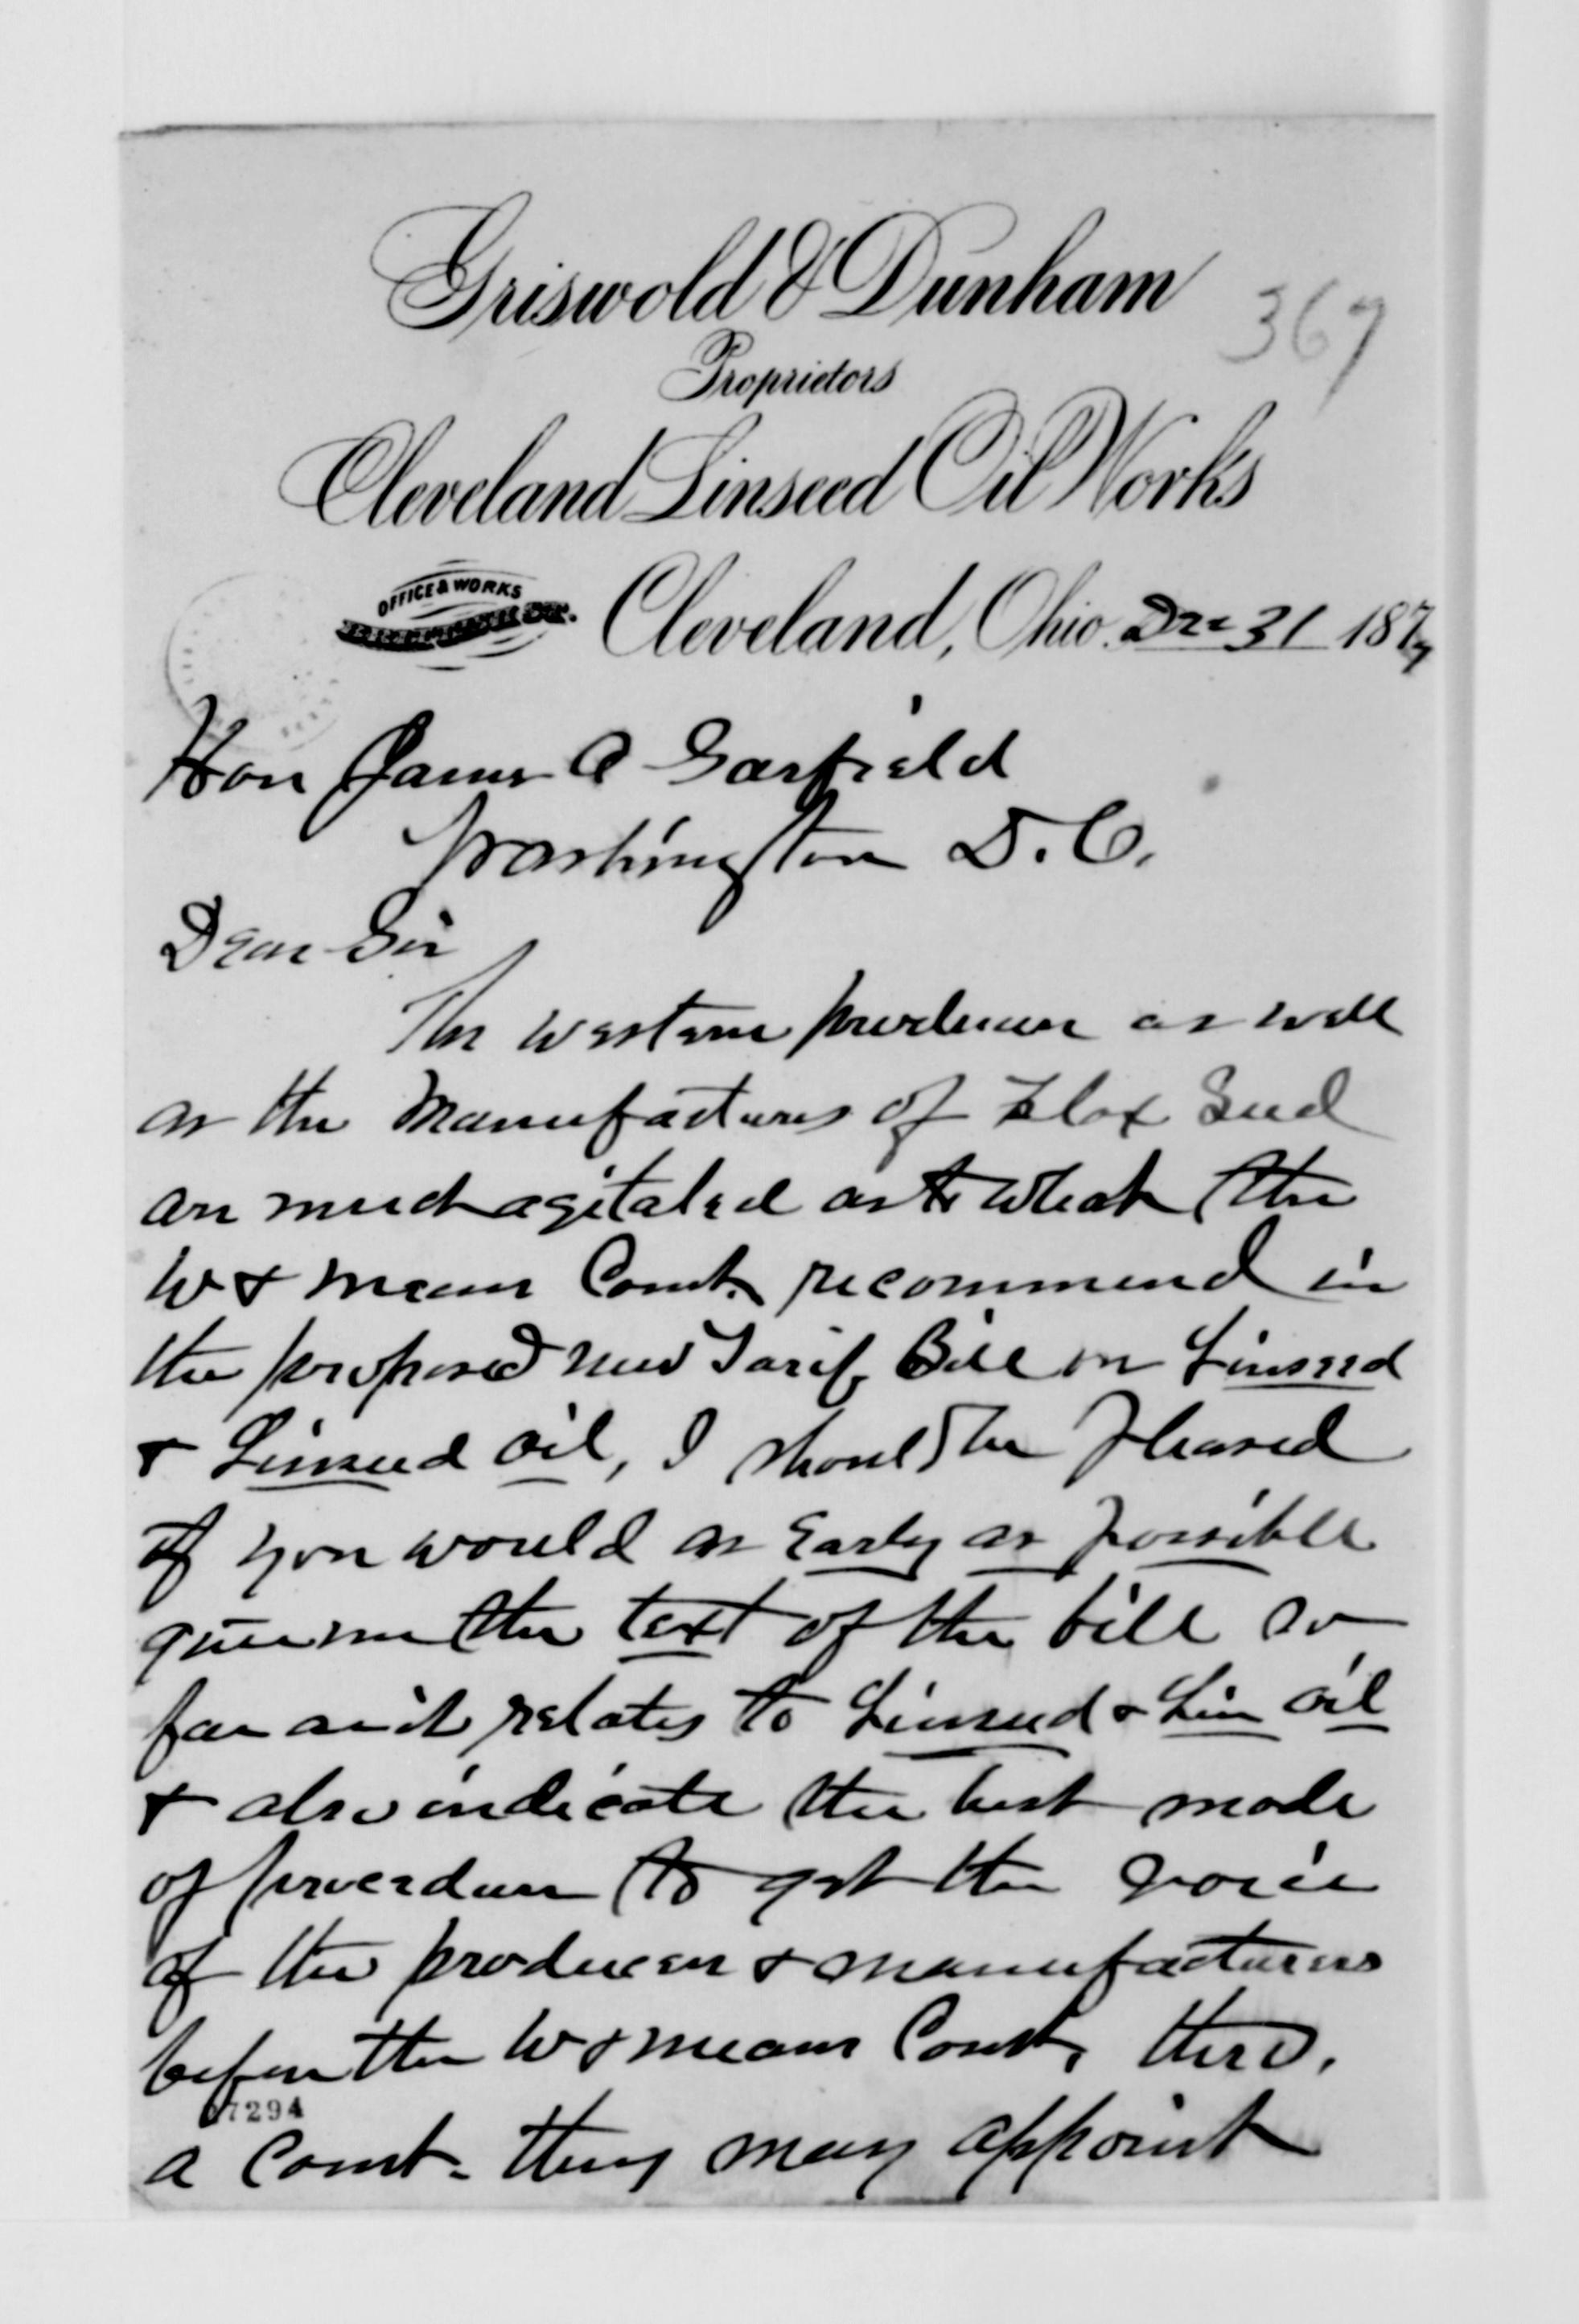 Griswold & Dunham
367
Proprietors
Cleveland Linseed Oil Works
OFFICE & WORKS
Cleveland, Ohio. Dec 31 1877
Hon James A Garfield
Washington D.C.
Dear Sir
The western producers as well
as the Manufacturers of Flax Seed
are much agitated as to what the
W & Means Comt. recommend in
the proposed new Tarif Bill on Linseed
& Linseed Oil, I should be pleased
if you would as early as possible
give me the text of the bill so
far as it relates to Linseed & Lin Oil
& also indicate the best mode
of proceedure to get the voice
of the producers & manufacturers
before the W & means Comt,
7294
a Comt. they may appoint